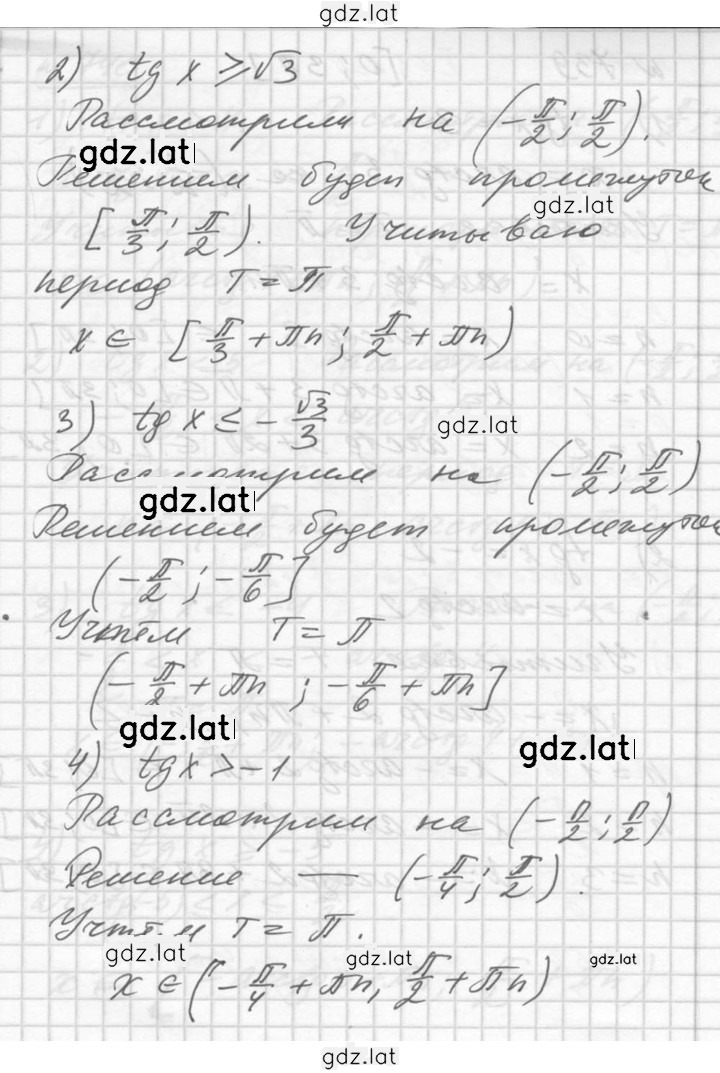 gdz.lat
2) tg x ⩾ √3
Рассмотрим на (-π/2; π/2).
gdz.lat
Решением будет промежуток
gdz.lat
[π/3; π/2). Учитываю
период T = π
x ∈ [π/3 + πn; π/2 + πn)
3) tg x ≤ -√3/3
gdz.lat
Рассмотрим на (-π/2; π/2)
gdz.lat
Решением будет промежуток
(-π/2; -π/6]
Учтём T = π
(-π/2 + πn; -π/6 + πn]
gdz.lat
gdz.lat
4) tg x > -1
Рассмотрим на (-π/2; π/2)
Решение — (-π/4; π/2).
Учтём T = π.
gdz.lat gdz.lat gdz.lat
x ∈ (-π/4 + πn, π/2 + πn)
gdz.lat